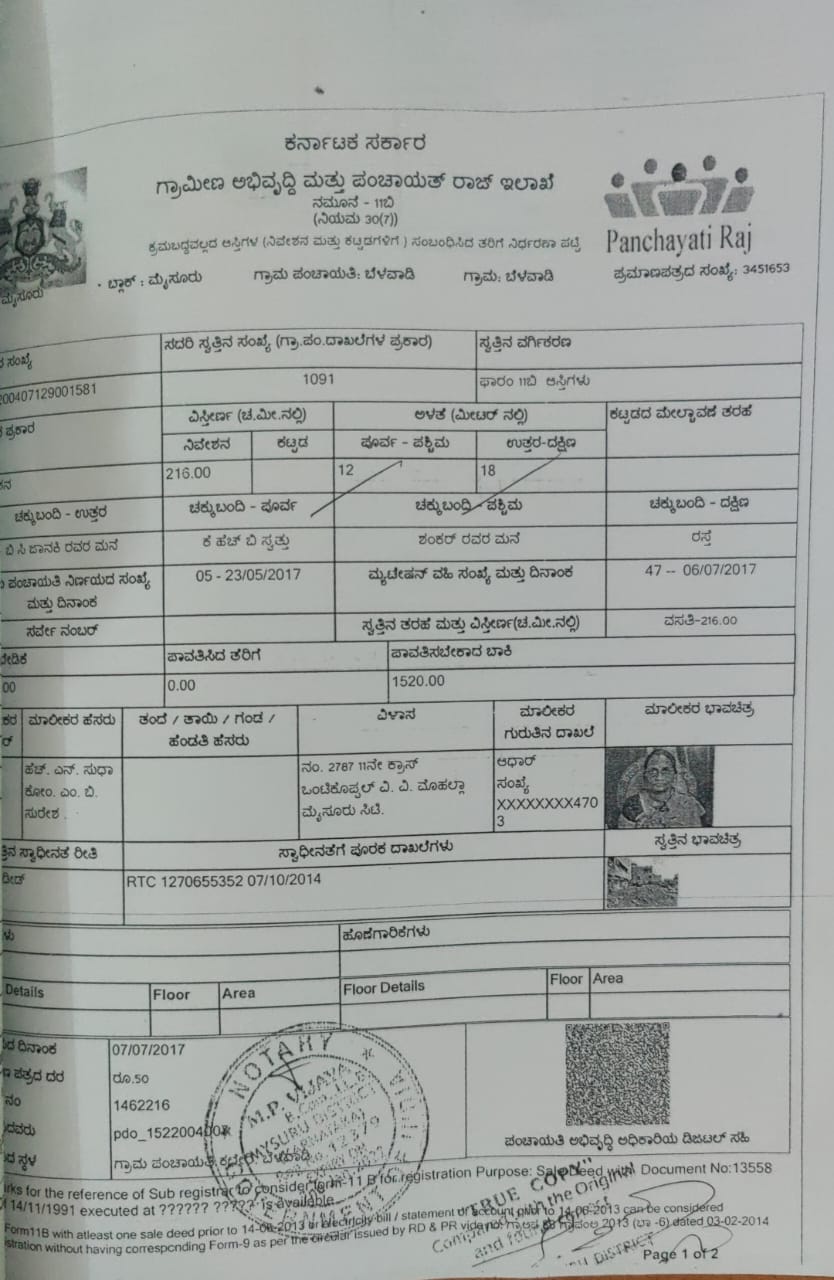 ಕರ್ನಾಟಕ ಸರ್ಕಾರ
ಗ್ರಾಮೀಣ ಅಭಿವೃದ್ಧಿ ಮತ್ತು ಪಂಚಾಯತ್ ರಾಜ್ ಇಲಾಖೆ
ನಮೂನೆ - 11ಬಿ
(ನಿಯಮ 30(7))
ಕ್ರಮಬದ್ಧವಲ್ಲದ ಆಸ್ತಿಗಳ (ನಿವೇಶನ ಮತ್ತು ಕಟ್ಟಡಗಳಿಗೆ) ಸಂಬಂಧಿಸಿದ ತೆರಿಗೆ ನಿರ್ಧರಣಾ ಪಟ್ಟಿ
Panchayati Raj
ಮೈಸೂರು
ಬ್ಲಾಕ್ : ಮೈಸೂರು ಗ್ರಾಮ ಪಂಚಾಯತಿ: ಬೆಳವಾಡಿ ಗ್ರಾಮ: ಬೆಳವಾಡಿ ಪ್ರಮಾಣಪತ್ರದ ಸಂಖ್ಯೆ: 3451653
ಸಂಖ್ಯೆ ಸದರಿ ಸ್ವತ್ತಿನ ಸಂಖ್ಯೆ (ಗ್ರಾ.ಪಂ.ದಾಖಲೆಗಳ ಪ್ರಕಾರ) ಸ್ವತ್ತಿನ ವರ್ಗಿಕರಣ
00407129001581 1091 ಫಾರಂ 11ಬಿ ಆಸ್ತಿಗಳು
ಪ್ರಕಾರ ವಿಸ್ತೀರ್ಣ (ಚ.ಮೀ.ನಲ್ಲಿ) ಅಳತೆ (ಮೀಟರ್ ನಲ್ಲಿ) ಕಟ್ಟಡದ ಮೇಲ್ಛಾವಣಿ ತರಹೆ
ನಿವೇಶನ ಕಟ್ಟಡ ಪೂರ್ವ - ಪಶ್ಚಿಮ ಉತ್ತರ-ದಕ್ಷಿಣ
216.00 12 18
ಚಕ್ಕುಬಂದಿ - ಉತ್ತರ ಚಕ್ಕುಬಂದಿ - ಪೂರ್ವ ಚಕ್ಕುಬಂದಿ - ಪಶ್ಚಿಮ ಚಕ್ಕುಬಂದಿ - ದಕ್ಷಿಣ
ಬಿ ಸಿ ಜಾನಕಿ ರವರ ಮನೆ ಕೆ ಹೆಚ್ ಬಿ ಸ್ವತ್ತು ಶಂಕರ್ ರವರ ಮನೆ ರಸ್ತೆ
ಪಂಚಾಯತಿ ನಿರ್ಣಯದ ಸಂಖ್ಯೆ 05 - 23/05/2017 ಮ್ಯುಟೇಷನ್ ವಹಿ ಸಂಖ್ಯೆ ಮತ್ತು ದಿನಾಂಕ 47 -- 06/07/2017
ಮತ್ತು ದಿನಾಂಕ
ಸರ್ವೇ ನಂಬರ್ ಸ್ವತ್ತಿನ ತರಹೆ ಮತ್ತು ವಿಸ್ತೀರ್ಣ(ಚ.ಮೀ.ನಲ್ಲಿ) ವಸತಿ-216.00
ಪಾವತಿಸಿದ ತೆರಿಗೆ ಪಾವತಿಸಬೇಕಾದ ಬಾಕಿ
00 0.00 1520.00
ಮಾಲೀಕರ ಹೆಸರು ತಂದೆ / ತಾಯಿ / ಗಂಡ / ವಿಳಾಸ ಮಾಲೀಕರ ಮಾಲೀಕರ ಭಾವಚಿತ್ರ
ಹೆಂಡತಿ ಹೆಸರು ಗುರುತಿನ ದಾಖಲೆ
ಹೆಚ್. ಎನ್. ಸುಧಾ ನಂ. 2787 11ನೇ ಕ್ರಾಸ್ ಆಧಾರ್
ಕೋಂ. ಎಂ. ಬಿ. ಒಂಟಿಕೊಪ್ಪಲ್ ವಿ. ವಿ. ಮೊಹಲ್ಲಾ ಸಂಖ್ಯೆ
ಸುರೇಶ . ಮೈಸೂರು ಸಿಟಿ. XXXXXXXX470
3
ಸ್ವಾಧೀನತೆ ರೀತಿ ಸ್ವಾಧೀನತೆಗೆ ಪೂರಕ ದಾಖಲೆಗಳು ಸ್ವತ್ತಿನ ಭಾವಚಿತ್ರ
RTC 1270655352 07/10/2014
ಹೊಣೆಗಾರಿಕೆಗಳು
Details Floor Area Floor Details Floor Area
ದಿನಾಂಕ 07/07/2017
ಪತ್ರದ ದರ ರೂ.50
ನಂ 1462216
pdo_1522004007
ಗ್ರಾಮ ಪಂಚಾಯತಿ ಕಛೇರಿ, ಬೆಳವಾಡಿ
ಪಂಚಾಯತಿ ಅಭಿವೃದ್ಧಿ ಅಧಿಕಾರಿಯ ಡಿಜಿಟಲ್ ಸಹಿ
NOTARY
M.P. VIJAYA
MYSURU DISTRICT
for the reference of Sub registrar to consider form-11 B for registration Purpose: Sale Deed with Document No:13558
14/11/1991 executed at ?????? ?????? is available
Form11B with atleast one sale deed prior to 14-06-2013 or electricity bill / statement of account prior to 14-06-2013 can be considered
without having corresponding Form-9 as per the circular issued by RD & PR vide no: 2013 dated 03-02-2014
"TRUE COPY"
Compared with the Original
and found correct
DISTRICT
Page 1 of 2